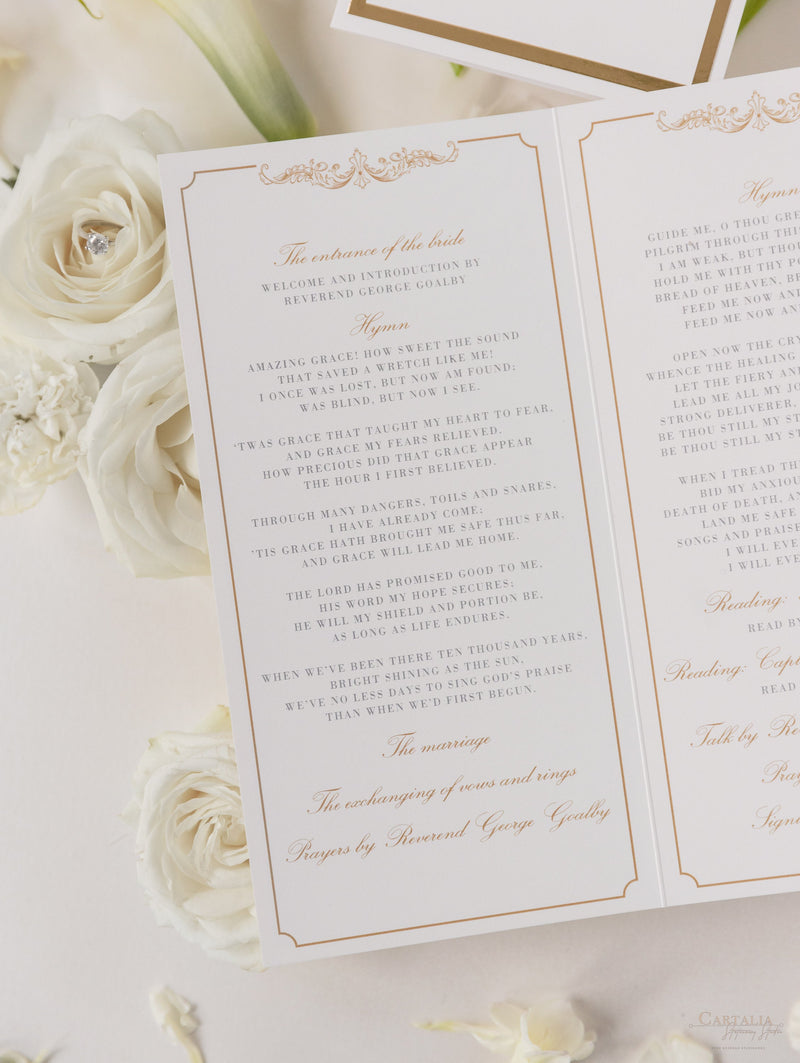 The entrance of the bride
WELCOME AND INTRODUCTION BY
REVEREND GEORGE GOALBY
Hymn
AMAZING GRACE! HOW SWEET THE SOUND
THAT SAVED A WRETCH LIKE ME!
I ONCE WAS LOST, BUT NOW AM FOUND;
WAS BLIND, BUT NOW I SEE.
'TWAS GRACE THAT TAUGHT MY HEART TO FEAR,
AND GRACE MY FEARS RELIEVED.
HOW PRECIOUS DID THAT GRACE APPEAR
THE HOUR I FIRST BELIEVED.
THROUGH MANY DANGERS, TOILS AND SNARES,
I HAVE ALREADY COME;
'TIS GRACE HATH BROUGHT ME SAFE THUS FAR,
AND GRACE WILL LEAD ME HOME.
THE LORD HAS PROMISED GOOD TO ME,
HIS WORD MY HOPE SECURES;
HE WILL MY SHIELD AND PORTION BE,
AS LONG AS LIFE ENDURES.
WHEN WE'VE BEEN THERE TEN THOUSAND YEARS,
BRIGHT SHINING AS THE SUN,
WE'VE NO LESS DAYS TO SING GOD'S PRAISE
THAN WHEN WE'D FIRST BEGUN.
The marriage
The exchanging of vows and rings
Prayers by Reverend George Goalby
Hymn
GUIDE ME, O THOU
PILGRIM THROUGH
I AM WEAK, BUT
HOLD ME WITH THY
BREAD OF HEAVEN,
FEED ME NOW
FEED ME NOW
OPEN NOW THE
WHENCE THE HEALING
LET THE FIERY
LEAD ME ALL MY
STRONG DELIVERER,
BE THOU STILL MY
BE THOU STILL MY
WHEN I TREAD
BID MY
DEATH OF DEATH,
LAND ME SAFE
SONGS AND
I WILL
I WILL
Reading:
READ BY
Reading:
READ
Talk by
CARTALIA